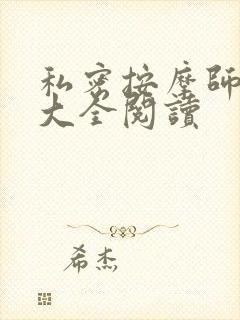 私密按摩師
大全閱讀
希杰